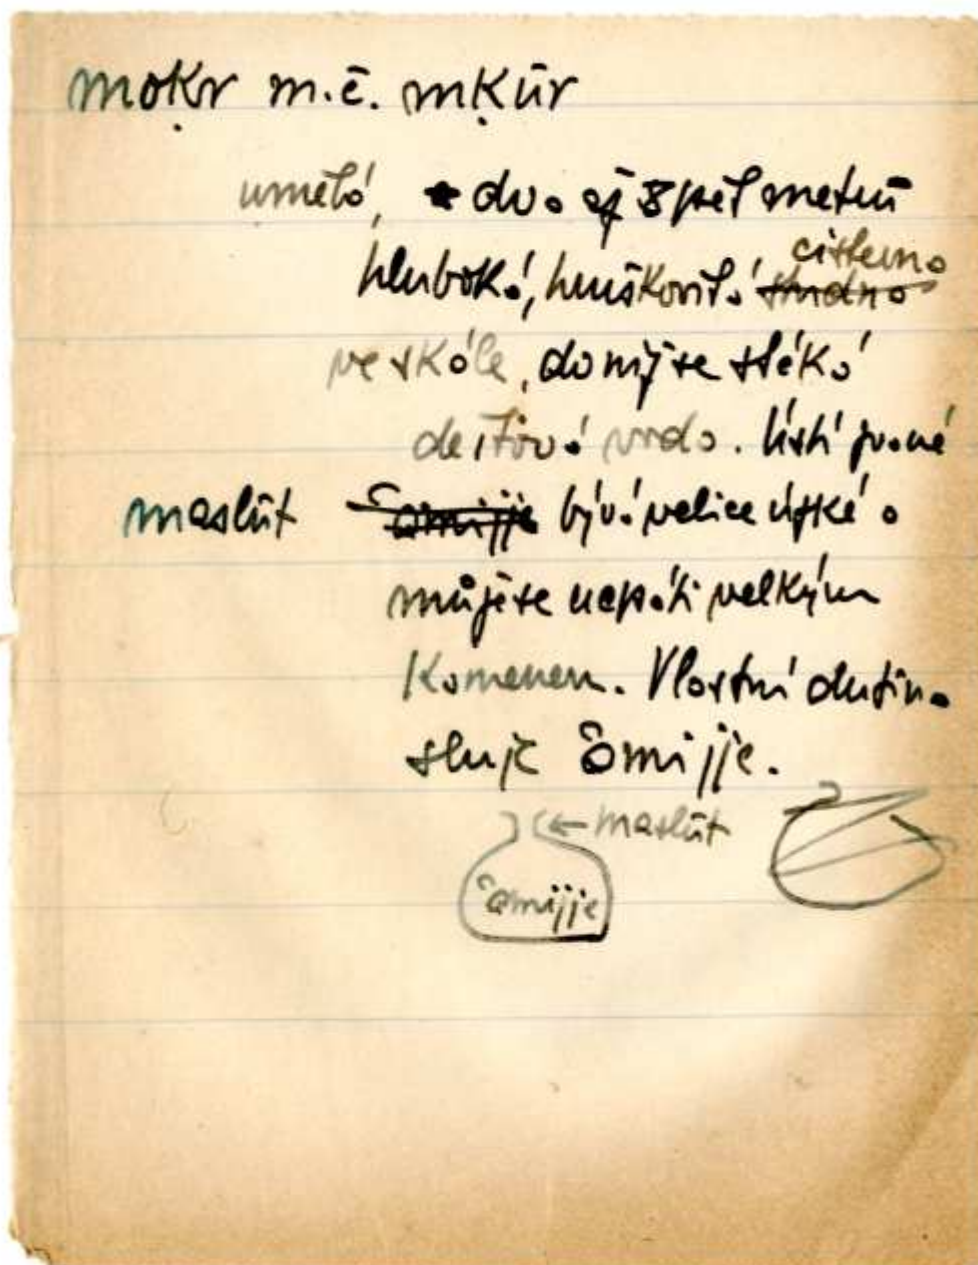 moḳr m.č. mḳūr
umělá, dva až pět metrů
hluboká, hruškovitá cisterna
ve skále, do níž se stéká
dešťová voda. Ústí zvané
maslūt bývá velice úzké a
může se ucpáti velkým
kamenem. Vlastní dutina
sluje ʿamijje.
← maslūt
ʿamijje